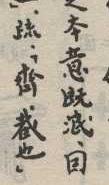 之本意既泯、因
」疏、「齊、截也」